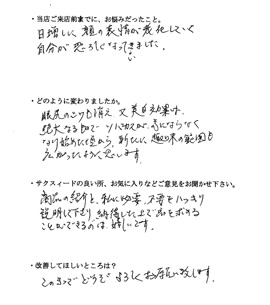 ・当店ご来店前までに、お悩みだったこと。
日増しに、顔の表情が変化していく
自分が恐ろしくなってきました。
・どのように変わりましたか。
眼尻のシワも消え 又美白効果は、
絶大なるもので ソバカスが、気にならなく
なり始めた頃から、新たに、
えがったように思います。
・サクスィードの良い所、お気に入りなどご意見をお聞かせ下さい。
商品の紹介と、私に必要、不要をハッキリ
説明して下さり、納得した上で品を求める
ことができるのは、嬉しいです。
・改善してほしいところは?
このままで どうぞ よろしくお願い致します。